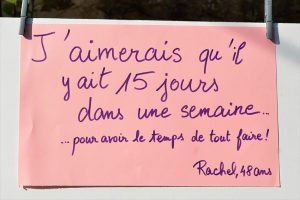 J'aimerais qu'il
y ait 15 jours
dans une semaine...
...pour avoir le temps de tout faire!
Rachel, 48 ans